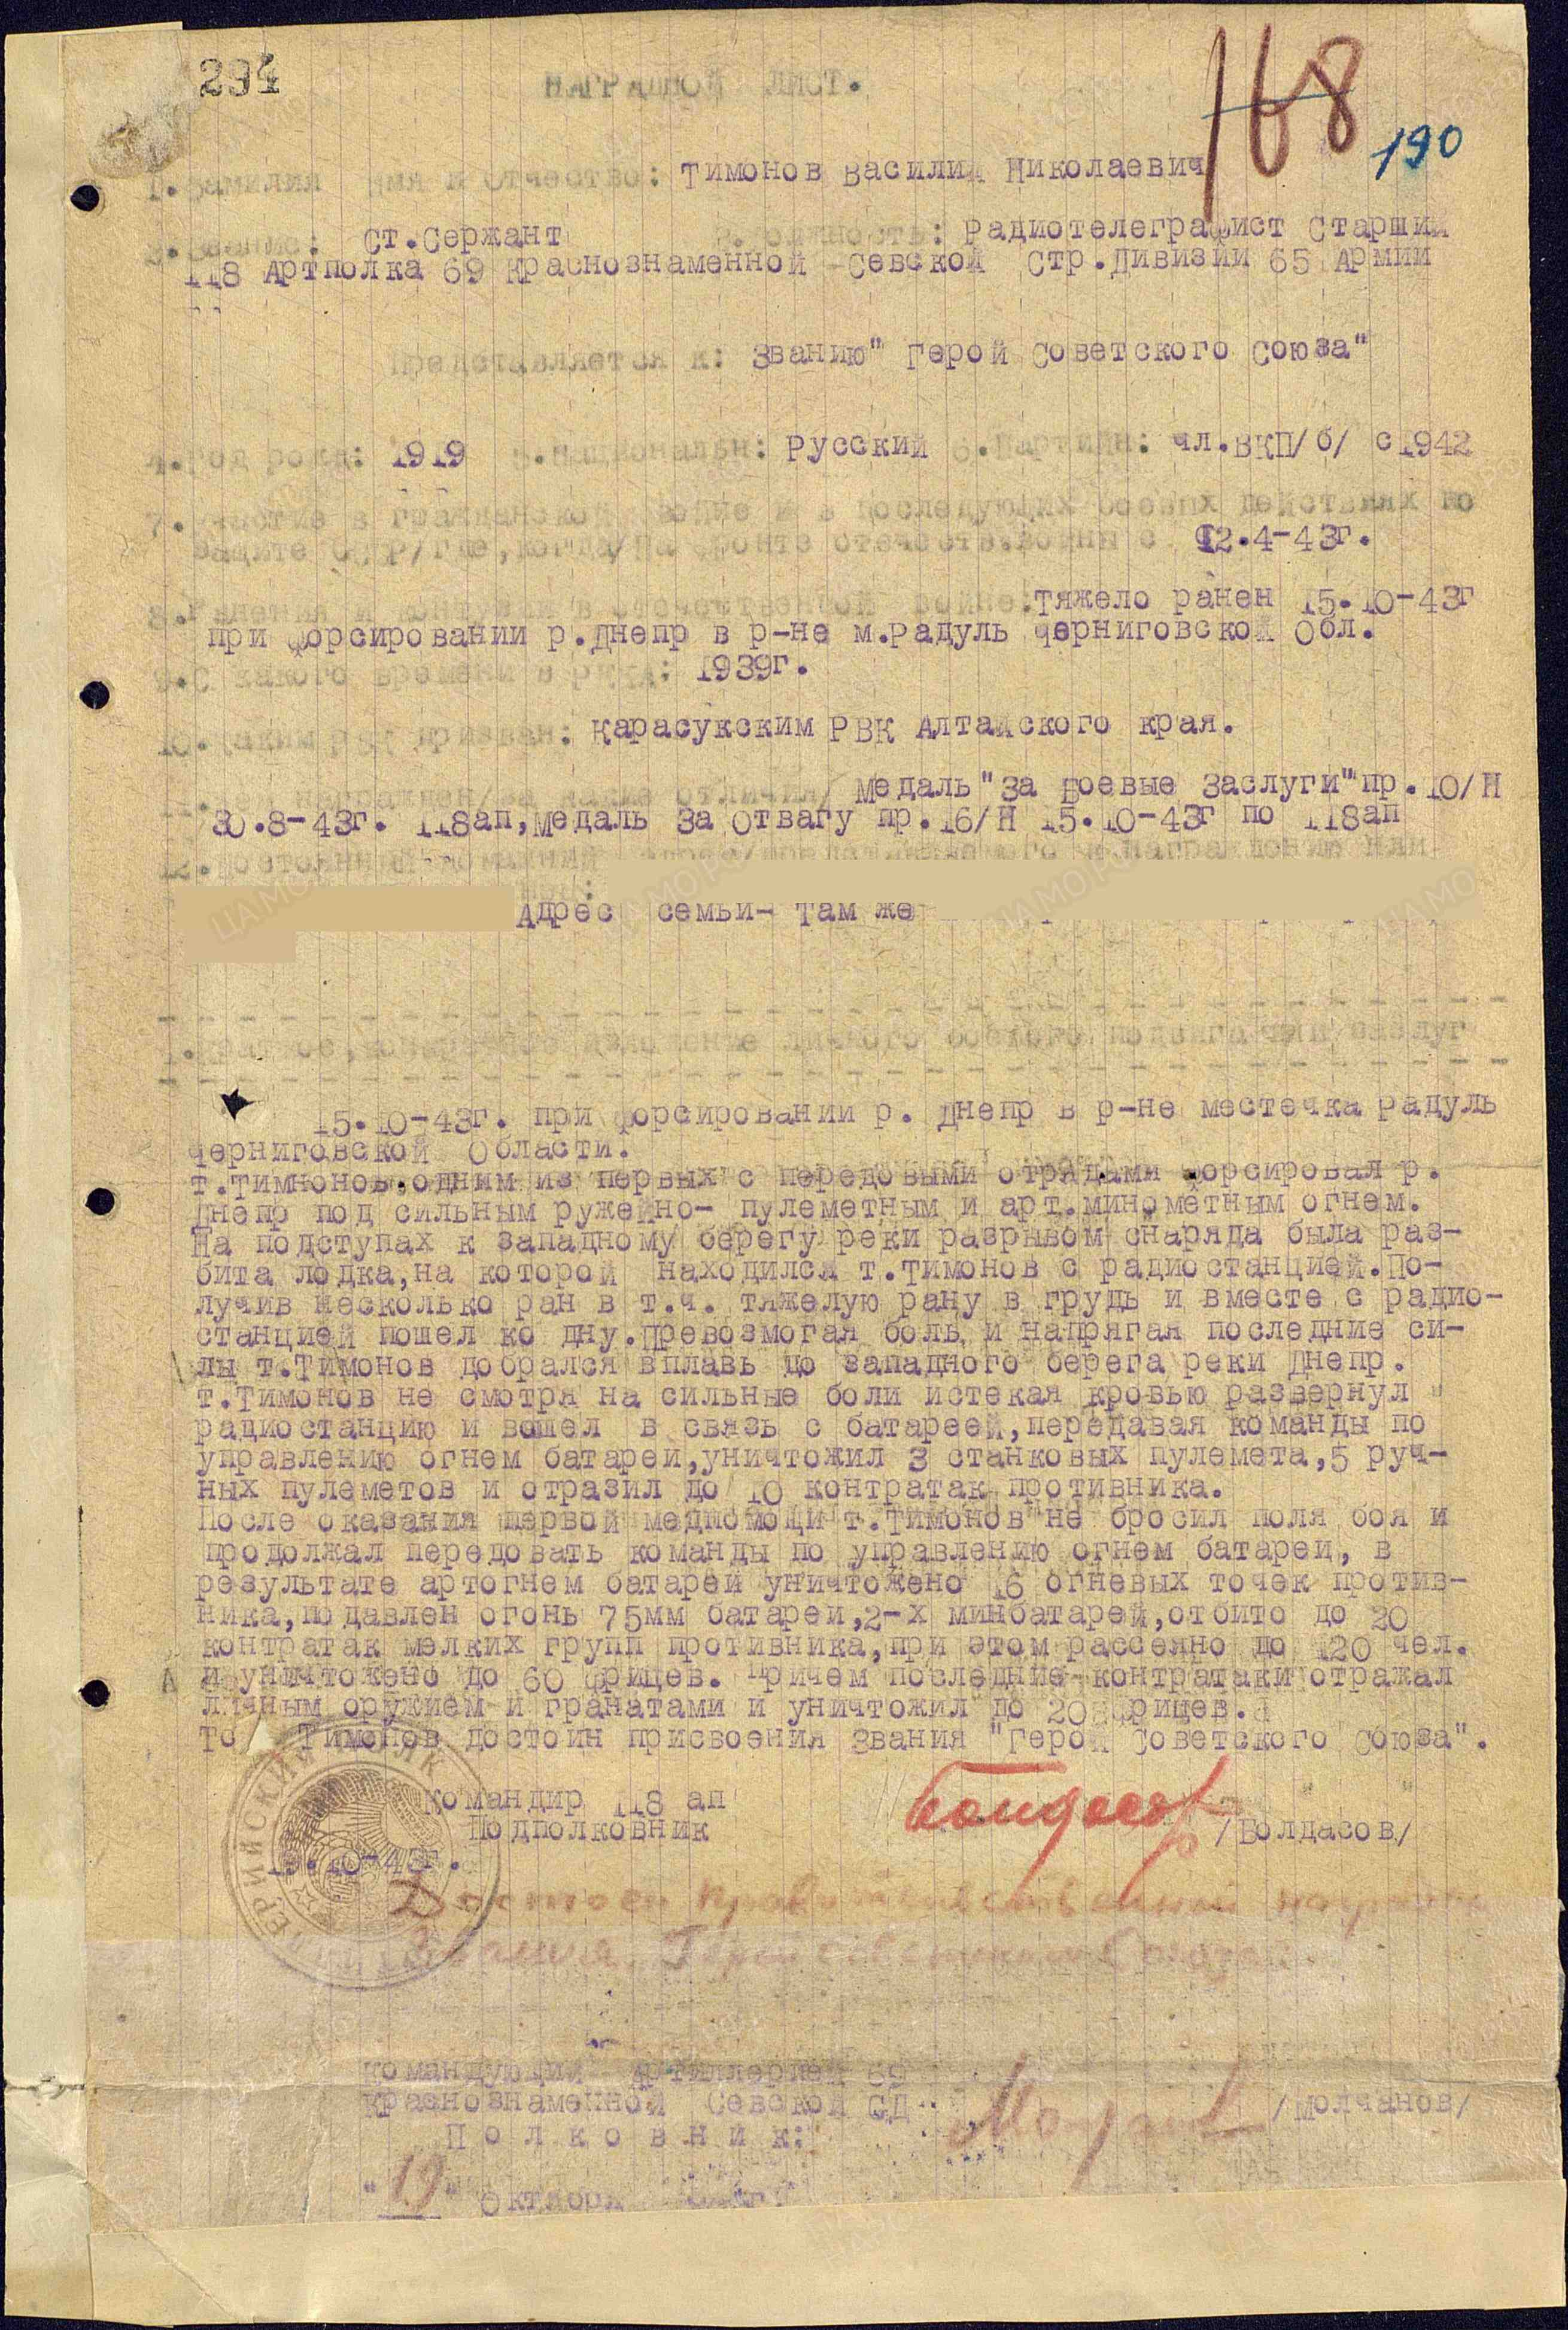 294
168
НАГРАДНОЙ ЛИСТ.
190
1.Фамилия Имя и Отчество: Тимонов Василий Николаевич
2.Звание: Ст.Сержант 3.Должность: Радиотелеграфист Старший
118 Артполка 69 Краснознаменной Севской Стр.Дивизии 65 Армии
Представляется к: Званию" Герой Советского Союза"
4.Год рожд: 1919 5.Национальн: Русский 6.Партийн: чл.ВКП/б/ с 1942
7.Участие в гражданской войне и в последующих боевых действиях по
защите СССР/где,когда/На фронте отечеств.войны с 12.4-43г.
8. Ранения и контузии в отечественной войне:Тяжело ранен 15.10-43г
при форсировании р.Днепр в р-не м.Радуль Черниговской Обл.
9.С какого времени в РККА: 1939г.
10.Каким РВК призван: Карасукским РВК Алтайского края.
11. награжден/за какие отличия/ Медаль"За Боевые Заслуги"пр.10/Н
30.8-43г. 118ап,Медаль За Отвагу пр.16/Н 15.10-43г по 118ап
12.Постоянный домашний
Адрес семьи- там же
1.Краткое,конкретное изложение личного боевого подвига или заслуг
15.10-43г. при форсировании р. Днепр в р-не местечка Радуль
Черниговской Области.
т.Тимнонов.одным из первых с передовыми отрядами форсировал р.
Днепр под сильным ружейно- пулеметным и арт.минометным огнем.
На подступах к западному берегу реки разрывом снаряда была раз-
бита лодка,на которой находился т.Тимонов с радиостанцией.По-
лучив несколько ран в т.ч. тяжелую рану в грудь и вместе с радио-
станцией пошел ко дну.Превозмогая боль и напрягая последние си-
лы т.Тимонов добрался вплавь до западного берега реки Днепр.
т.Тимонов не смотря на сильные боли истекая кровью развернул
радиостанцию и вошел в связь с батареей,передавая команды по
управлению огнем батареи,уничтожил 3 станковых пулемета,5 руч-
ных пулеметов и отразил до 10 контратак противника.
После оказания первой медпомощи т.Тимонов не бросил поля боя и
продолжал передовать команды по управлению огнем батареи, в
результате артогнем батарей уничтожено 16 огневых точек против-
ника,подавлен огонь 75мм батареи,2-х минбатарей,отбито до 20
контратак мелких групп противника,при этом рассеяно до 120 чел.
и уничтожено до 60 фрицев. Причем последние контратаки отражал
личным оружием и гранатами и уничтожил до 20 фрицев.
То Тимонов достоин присвоения звания "Герой Советского Союза".
Командир 118 ап
Подполковник /Болдасов/
Достоен правительственной награды
Звания Герой Советского Союза
Командующий Артиллерией 69
Краснознаменной Севской СД
Полковник: /Молчанов/
"19" Октября